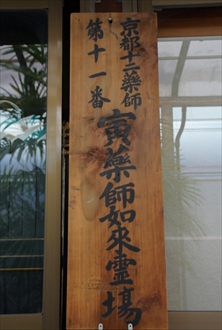 京都十二藥師
第十一番
寅藥師如來霊場